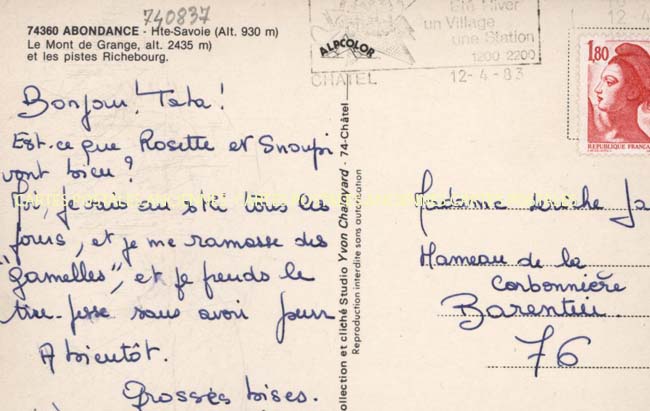 740837
74360 ABONDANCE - Hte-Savoie (Alt. 930 m)
Le Mont de Grange, alt. 2435 m)
et les pistes Richebourg.
ALPCOLOR
Eté Hiver
un Village
une Station
1200 2200
CHATEL 12-4-83
1,80
REPUBLIQUE FRANÇAISE
Bonjour! Tata!
Est-ce que Rosette et Snoupi
vont bien?
Moi, je vais au ski tous les
jours, et je me ramasse des
"gamelles", et je prends le
tire-fesse sans avoir peur
A bientôt.
Grosses bises.
ollection et cliché Studio Yvon Chaloyard - 74-Châtel
Reproduction interdite sans autorisation
Madame Ja
Hameau de la
Corbonnière
Barentin
76